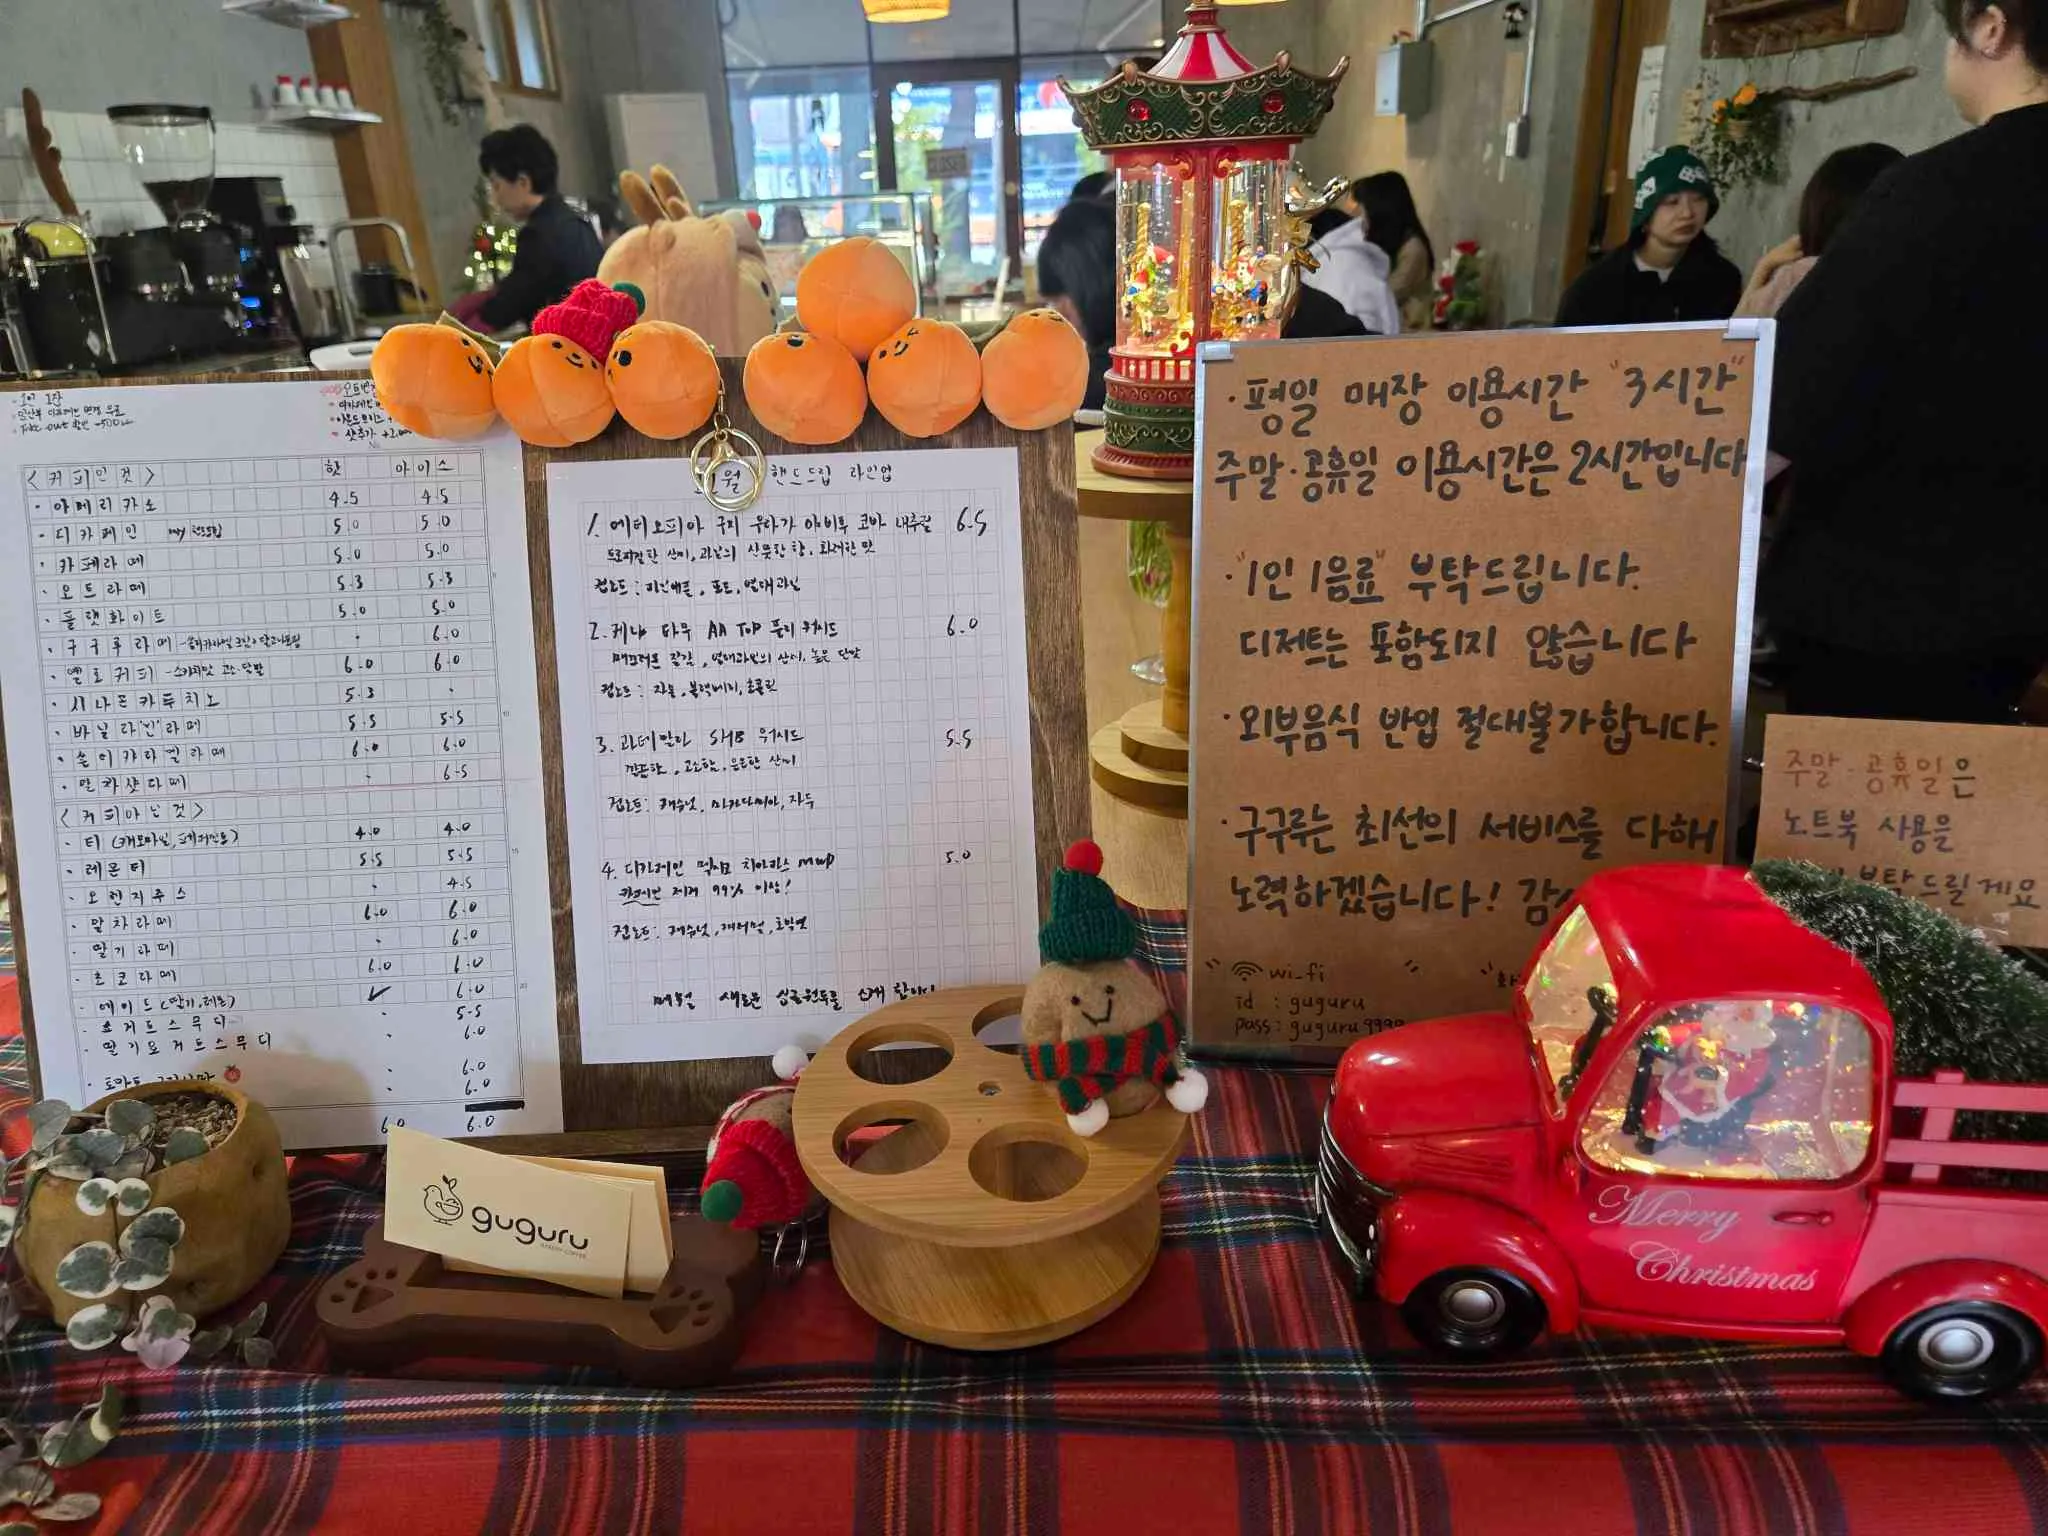 · 1인 1잔
Take out 할인 -500
샷추가 +1.000
<커피인것> 핫 아이스
· 아메리카노 4.5 4.5
· 디카페인 5.0 5.0
· 카페라떼 5.0 5.0
· 오트라떼 5.3 5.3
· 플랫화이트 5.0 5.0
· 구구루라떼 · 6.0
· 옐로커피 6.0 6.0
· 시나몬카푸치노 5.3 ·
· 바닐라'빈'라떼 5.5 5.5
· 솔티카라멜라떼 6.0 6.0
· 말차샷라떼 · 6.5
<커피아닌것>
· 티 (캐모마일, 페퍼민트) 4.0 4.0
· 레몬티 5.5 5.5
· 오렌지쥬스 · 4.5
· 말차라떼 6.0 6.0
· 딸기라떼 · 6.0
· 초코라떼 6.0 6.0
· 에이드 (딸기, 레몬) 6.0
· 요거트스무디 · 5.5
· 딸기요거트스무디 · 6.0
· 토마토 · 6.0
· 6.0
6.0 6.0
월 핸드드립 라인업
1. 에티오피아 구지 우라가 야비투 코바 내추럴 6.5
트로피컬한 산미, 과일의 산뜻한 향, 화려한 맛
컵노트 : 파인애플, 포도, 열대과일
2. 케냐 타무 AA TOP 풀리 워시드 6.0
매끄러운 질감, 열대과일의 산미, 높은 단맛
컵노트 : 자몽, 블랙베리, 초콜릿
3. 과테말라 SHB 워시드 5.5
깔끔함, 고소함, 은은한 산미
컵노트 : 캐슈넛, 마카다미아, 자두
4. 디카페인 멕시코 치아파스 MWP 5.0
카페인 제거 99% 이상!
컵노트 : 캐슈넛, 캐러멜, 호박엿
매월 새로운 싱글원두를 소개 합니다
· 평일 매장 이용시간 "3시간"
주말·공휴일 이용시간은 2시간입니다
· "1인 1음료" 부탁드립니다.
디저트는 포함되지 않습니다
· 외부음식 반입 절대불가합니다.
· 구구루는 최선의 서비스를 다해
노력하겠습니다! 감
" wi_fi "
id : guguru
pass : guguru9999
주말·공휴일은
노트북 사용을
부탁드릴게요
guguru
Merry
Christmas